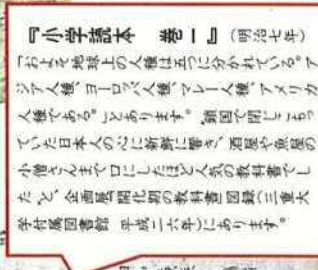 『小学読本 巻一』(明治七年)
「おおよそ地球上の人種は五つに分かれている。ア
ジア人種、ヨーロッパ人種、マレー人種、アメリカ
人種である。」とあります。鎖国で閉じこもっ
ていた日本人の心に新鮮に響き、酒屋や魚屋の
小僧さんまで口にしたほど人気の教科書でし
た。と、企画展開化期の教科書図録(三重大
学付属図書館 平成二六年)にあります。